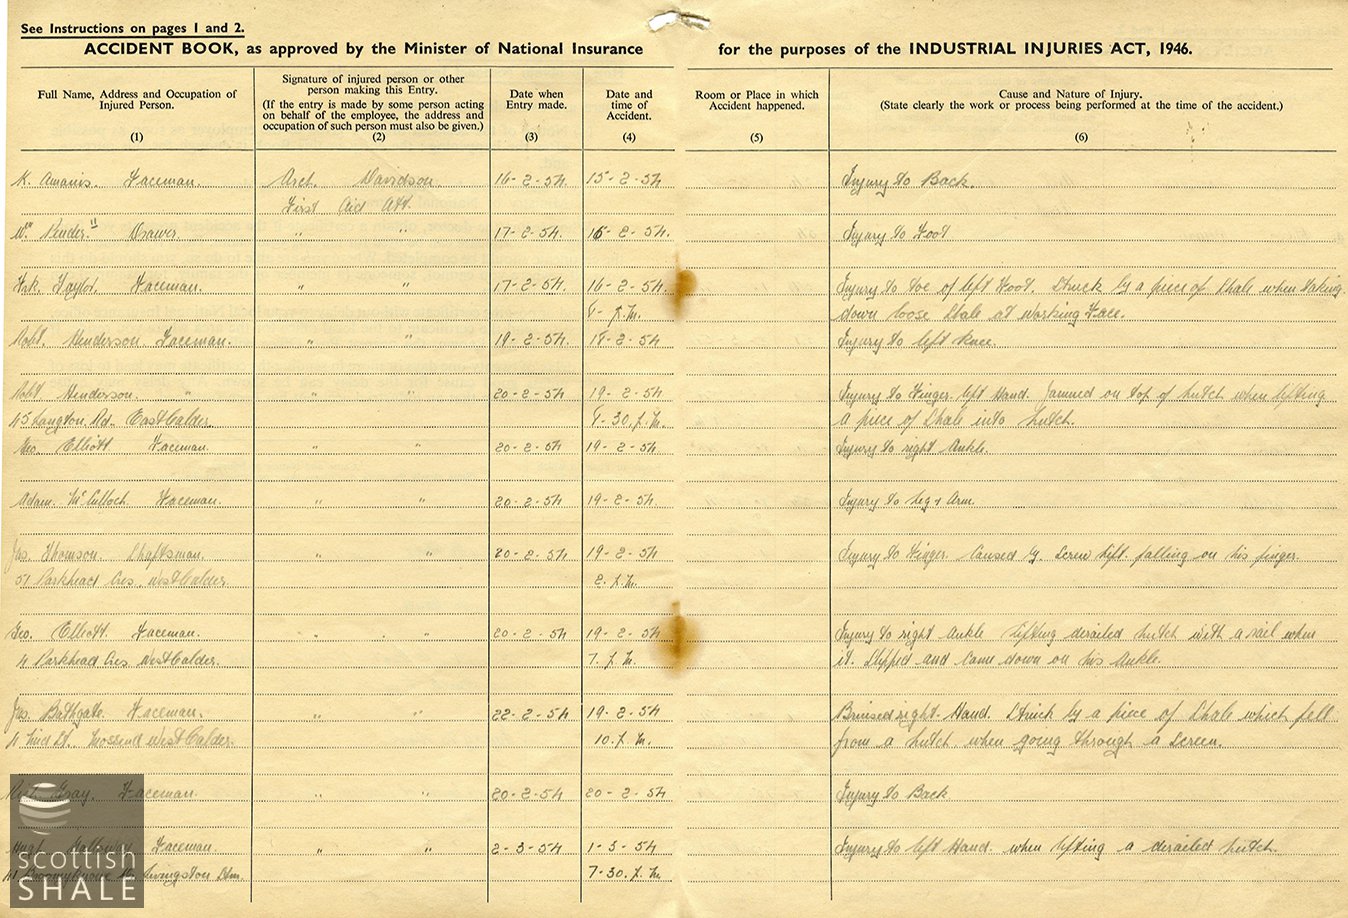 See Instructions on pages 1 and 2.
ACCIDENT BOOK, as approved by the Minister of National Insurance for the purposes of the INDUSTRIAL INJURIES ACT, 1946.
Full Name, Address and Occupation of Injured Person. (1)
Signature of injured person or other person making this Entry. (If the entry is made by some person acting on behalf of the employee, the address and occupation of such person must also be given.) (2)
Date when Entry made. (3)
Date and time of Accident. (4)
Room or Place in which Accident happened. (5)
Cause and Nature of Injury. (State clearly the work or process being performed at the time of the accident.) (6)
K. Amanis. Faceman. Arch. Davidson. 16-2-54. 15-2-54 Injury to Back.
First Aid Att.
Wm Drawer. " " 17-2-54. 16-2-54. Injury to Foot
Taylor. Faceman. " " 17-2-54. 16-2-54. Injury to toe of left Foot. Struck by a piece of Shale when taking
P.M. down loose Shale at Working Face.
Robt. Henderson. Faceman. " " 19-2-54. 18-2-54 Injury to left Knee.
Robt Henderson. " " " 20-2-54 19-2-54 Injury to Finger left Hand. Jammed on top of hutch when lifting
45 Langton Rd. East Calder. 9-30. P.M. a piece of Shale into hutch.
Geo. Elliott Faceman. " " 20-2-54 19-2-54 Injury to right Ankle.
Adam. McCulloch Faceman. " " 20-2-54 19-2-54 Injury to Leg & Arm.
Jas. Thomson. Shaftsman. " " 20-2-54 19-2-54 Injury to Finger. Caused by Screw Lift. falling on his finger.
51 Parkhead Cres. West Calder. 2. P.M.
Geo. Elliott. Faceman. " " 20-2-54 19-2-54 Injury to right Ankle lifting derailed hutch with a rail when
4 Parkhead Cres. West Calder. 7. P.M. it. Slipped and came down on his Ankle.
Jas. Bathgate. Faceman. " " 22-2-54 19-2-54 Bruised right Hand. Struck by a piece of Shale which fell
Mossend West Calder. 10. P.M. from a hutch when going through a Screen.
Gray. Faceman. " " 20-2-54 20-2-54 Injury to Back
Hugh Faceman. " " 2-3-54 1-3-54 Injury to left Hand. when lifting a derailed hutch.
41 Livingston Stn. 7-30. P.M.
scottish
SHALE